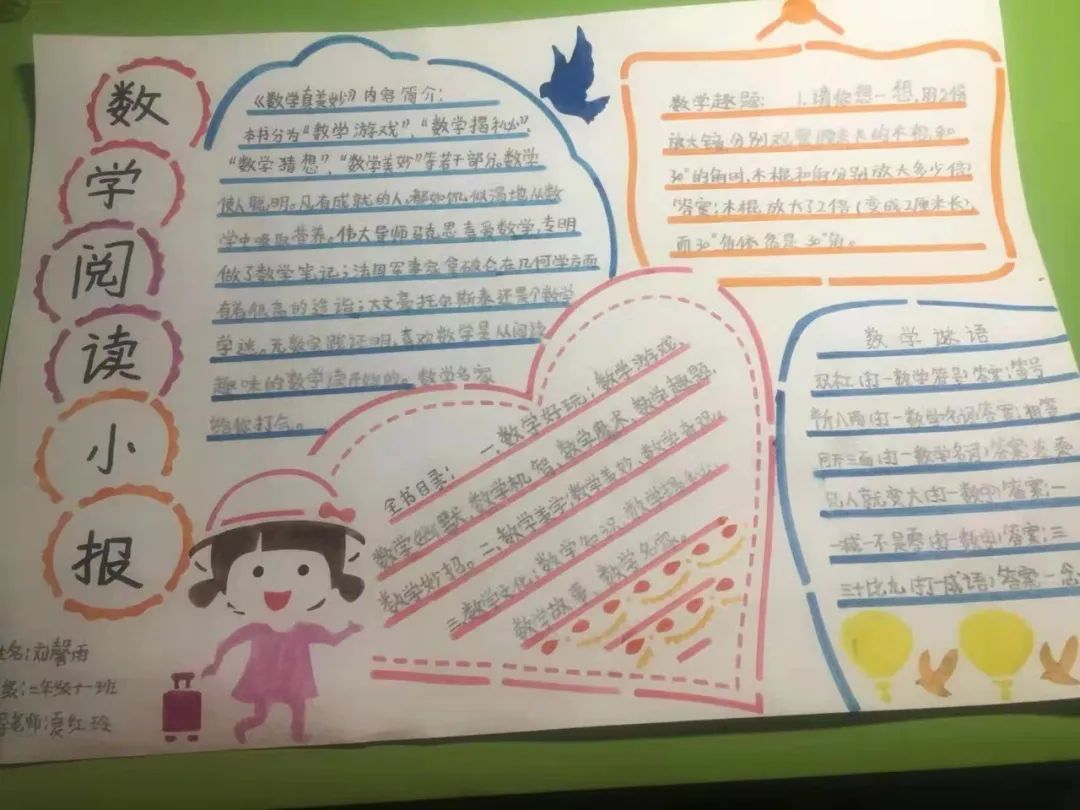 数
学
阅
读
小
报
《数学真美妙》内容简介:
本书分为“数学游戏”,“数学揭秘”,
“数学猜想”,“数学美妙”等若干部分。数学
使人聪明。凡有成就的人,都如饥似渴地从数
学中吸取营养。伟大导师马克思喜爱数学,专明
做了数学笔记;法国军事家拿破仑在几何学方面
有着很高的造诣;大文豪托尔斯泰还是个数学
学迷。无数实践证明,喜欢数学是从阅读
趣味的数学读开始的。数学名家
给你打气。
数学趣题: 1.请你想一想,用2倍
放大镜分别观察1厘米长的木棍和
30°的角时,木棍和角分别放大多少倍?
答案:木棍放大了2倍(变成2厘米长),
而30°角依然是30°角。
全书目录: 一、数学好玩:数学游戏、
数学幽默、数学机智、数学魔术、数学趣题、
数学妙招。二、数学美学:数学美妙、数学奇观。
三、数学文化:数学知识、数学揭秘、
数学故事、数学名家。
数学谜语
双杠(打一数学符号)答案:等号
半斤八两(打一数学名词)答案:相等
网开三面(打一数学名词)答案:
见人就变大(打一数字)答案:一
一减一不是零(打一数字)答案:三
三十比九(打一成语)答案:一念
姓名:刘馨雨
级:二年级十一班
老师:夏红玲